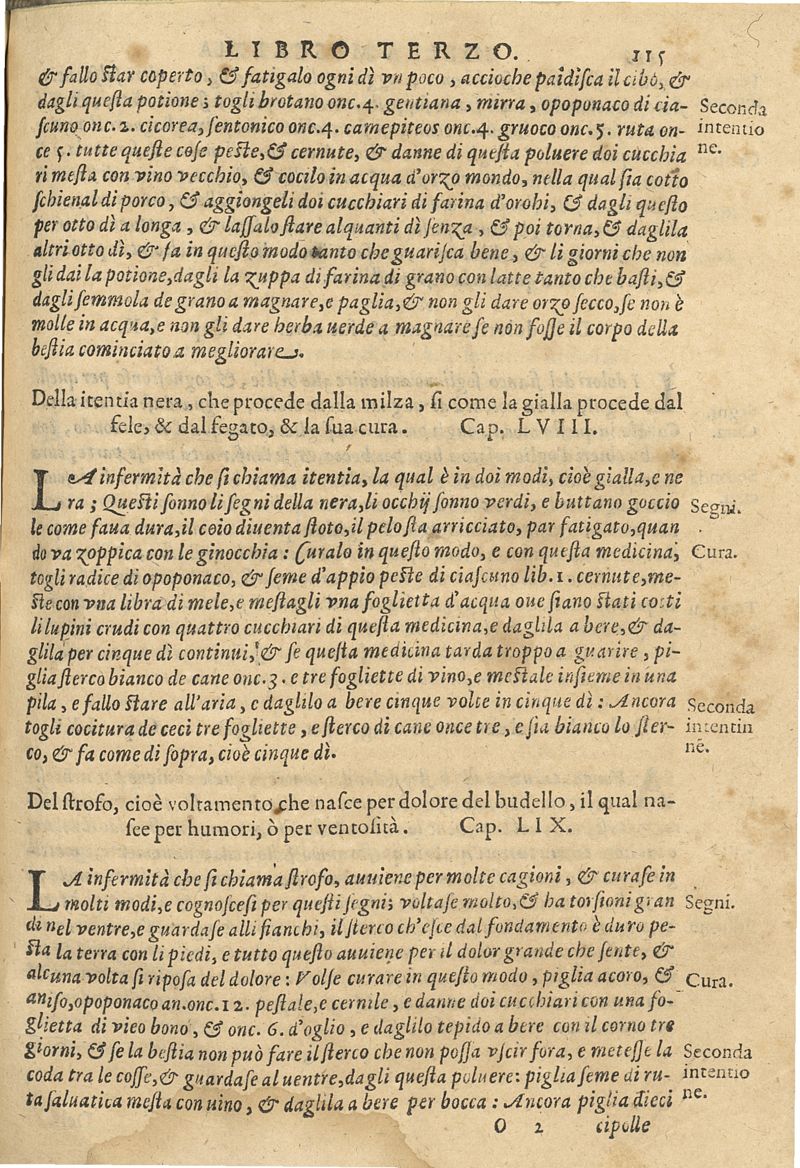 LIBRO TERZO. 115
& fallo star coperto, & fatigalo ogni dì vn poco, accioche paidisca il cibo, &
dagli questa potione; togli brotano onc.4. gentiana, mirra, opoponaco di cia-
Seconda
scuno onc. 2. cicorea, sentonico onc.4. camepiteos onc.4. gruoco onc.5. ruta on-
intentio
ce 5. tutte queste cose peste, & cernute, & danne di questa poluere doi cucchia
ne.
ri mesta con vino vecchio, & cocilo in acqua d'orzo mondo, nella qual sia cotto
schienal di porco, & aggiongeli doi cucchiari di farina d'orobi, & dagli questo
per otto dì a longa, & lassalo stare alquanti dì senza, & poi torna, & daglila
altri otto dì, & fa in questo modo tanto che guarisca bene, & li giorni che non
gli dai la potione, dagli la zuppa di farina di grano con latte tanto che basti, &
dagli semmola de grano a magnare, e paglia, & non gli dare orzo secco, se non è
molle in acqua, e non gli dare herba uerde a magnare se non fosse il corpo della
bestia cominciato a megliorare.
Della itentia nera, che procede dalla milza, si come la gialla procede dal
fele, & dal fegato, & la sua cura. Cap. LVIII.
LA infermità che si chiama itentia, la qual è in doi modi, cioè gialla, e ne
ra; Questi sonno li segni della nera, li occhij sonno verdi, e buttano goccio
Segni.
le come faua dura, il coio diuenta stoto, il pelo sta arricciato, par fatigato, quan
do va zoppica con le ginocchia: Curalo in questo modo, e con questa medicina;
Cura.
togli radice di opoponaco, & seme d'appio peste di ciascuno lib.1. cernute, me-
ste con vna libra di mele, e mestagli vna foglietta d'acqua oue siano stati cotti
li lupini crudi con quattro cucchiari di questa medicina, e daglila a bere, & da-
glila per cinque dì continui, & se questa medicina tarda troppo a guarire, pi-
glia sterco bianco de cane onc.3. e tre fogliette di vino, e mestale insieme in una
pila, e fallo stare all'aria, e daglilo a bere cinque volte in cinque dì: Ancora
Seconda
togli cocitura de ceci tre fogliette, e sterco di cane once tre, e sia bianco lo ster-
intentin
co, & fa come di sopra, cioè cinque dì.
ne.
Del strofo, cioè voltamento che nasce per dolore del budello, il qual na-
sce per humori, ò per ventosità. Cap. LIX.
LA infermità che si chiama strofo, auuiene per molte cagioni, & curase in
molti modi, e cognoscesi per questi segni; voltase molto, & ha torsioni gran
Segni.
di nel ventre, e guardase alli fianchi, il sterco ch'esce dal fondamento è duro pe-
sta la terra con li piedi, e tutto questo auuiene per il dolor grande che sente, &
alcuna volta si riposa del dolore: Volse curare in questo modo, piglia acoro, &
Cura.
aniso, opoponaco an.onc.12. pestale, e cernile, e danne doi cucchiari con una fo-
glietta di vieo bono, & onc. 6. d'oglio, e daglilo tepido a bere con il corno tre
giorni, & se la bestia non può fare il sterco che non possa vscir fora, e metesse la
Seconda
coda tra le cosse, & guardase al uentre, dagli questa poluere: piglia seme di ru-
intentio
ta saluatica mesta con uino, & daglila a bere per bocca: Ancora piglia dieci
ne.
O 2 cipolle